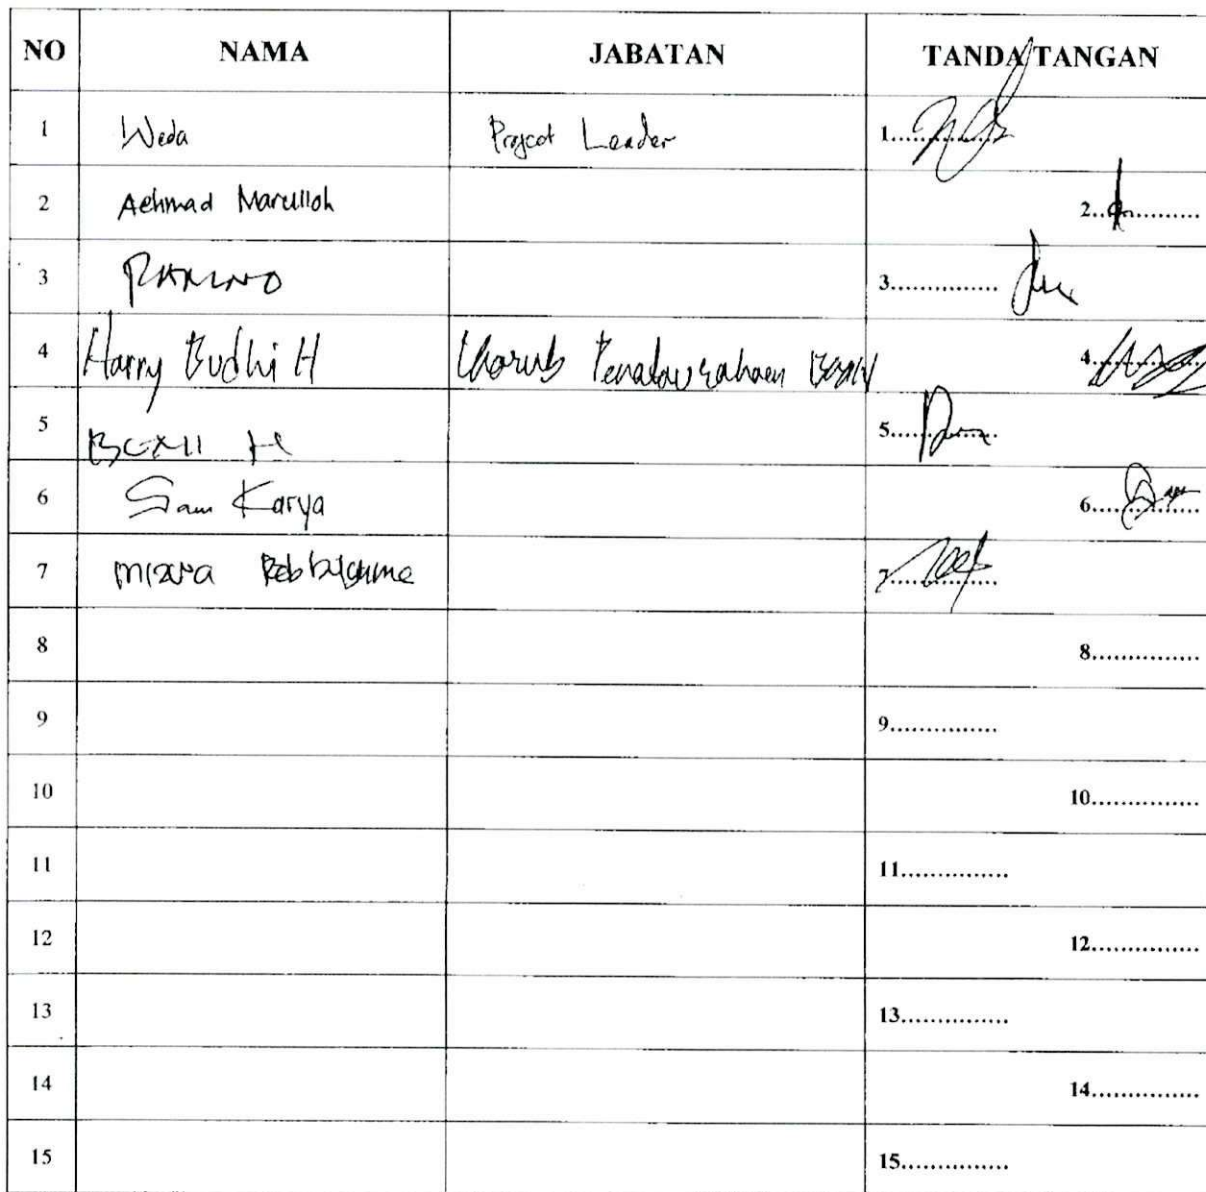 NO NAMA JABATAN TANDA TANGAN
1 Weda Project Leader 1...............
2 Achmad Marulloh 2...............
3 3...............
4 Harry Budhi H Penatausahaan 4...............
5 5...............
6 Karya 6...............
7 7...............
8 8...............
9 9...............
10 10...............
11 11...............
12 12...............
13 13...............
14 14...............
15 15...............